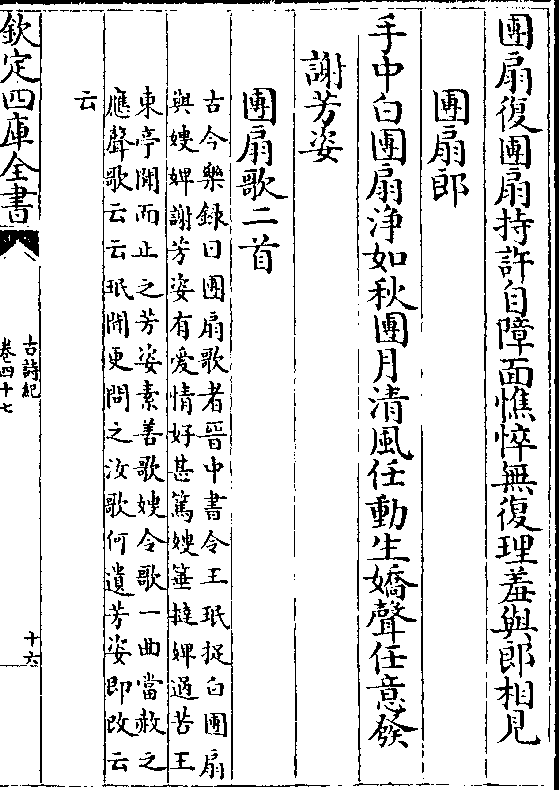 團扇復團扇持許自障面憔悴無復理羞與郎相見
團扇郎
手中白團扇淨如秋團月清風任動生嬌聲任意發
謝芳姿
團扇歌二首
古今樂録曰團扇歌者晉中書令王珉捉白團扇
與嫂婢謝芳姿有愛情好甚篤嫂箠撻婢過苦王
東亭聞而止之芳姿素善歌嫂令歌一曲當赦之
應聲歌云云珉聞更問之汝歌何遺芳姿即改云
云
欽定四庫全書
古詩紀
卷四十七
十六